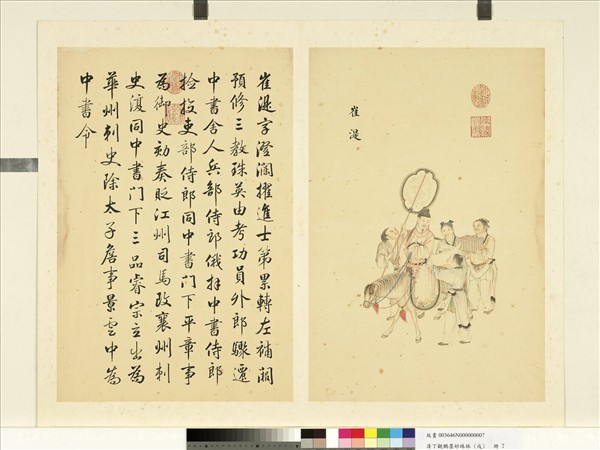 崔湜
崔湜字澄瀾擢進士第累轉左補闕
預修三教珠英由考功員外郎驟遷
中書舍人兵部侍郎俄拜中書侍郎
檢校吏部侍郎同中書門下平章事
為御史劾奏貶江州司馬改襄州刺
史復同中書門下三品睿宗立出為
華州刺史除太子詹事景雲中為
中書令
故畫 003646N000000007